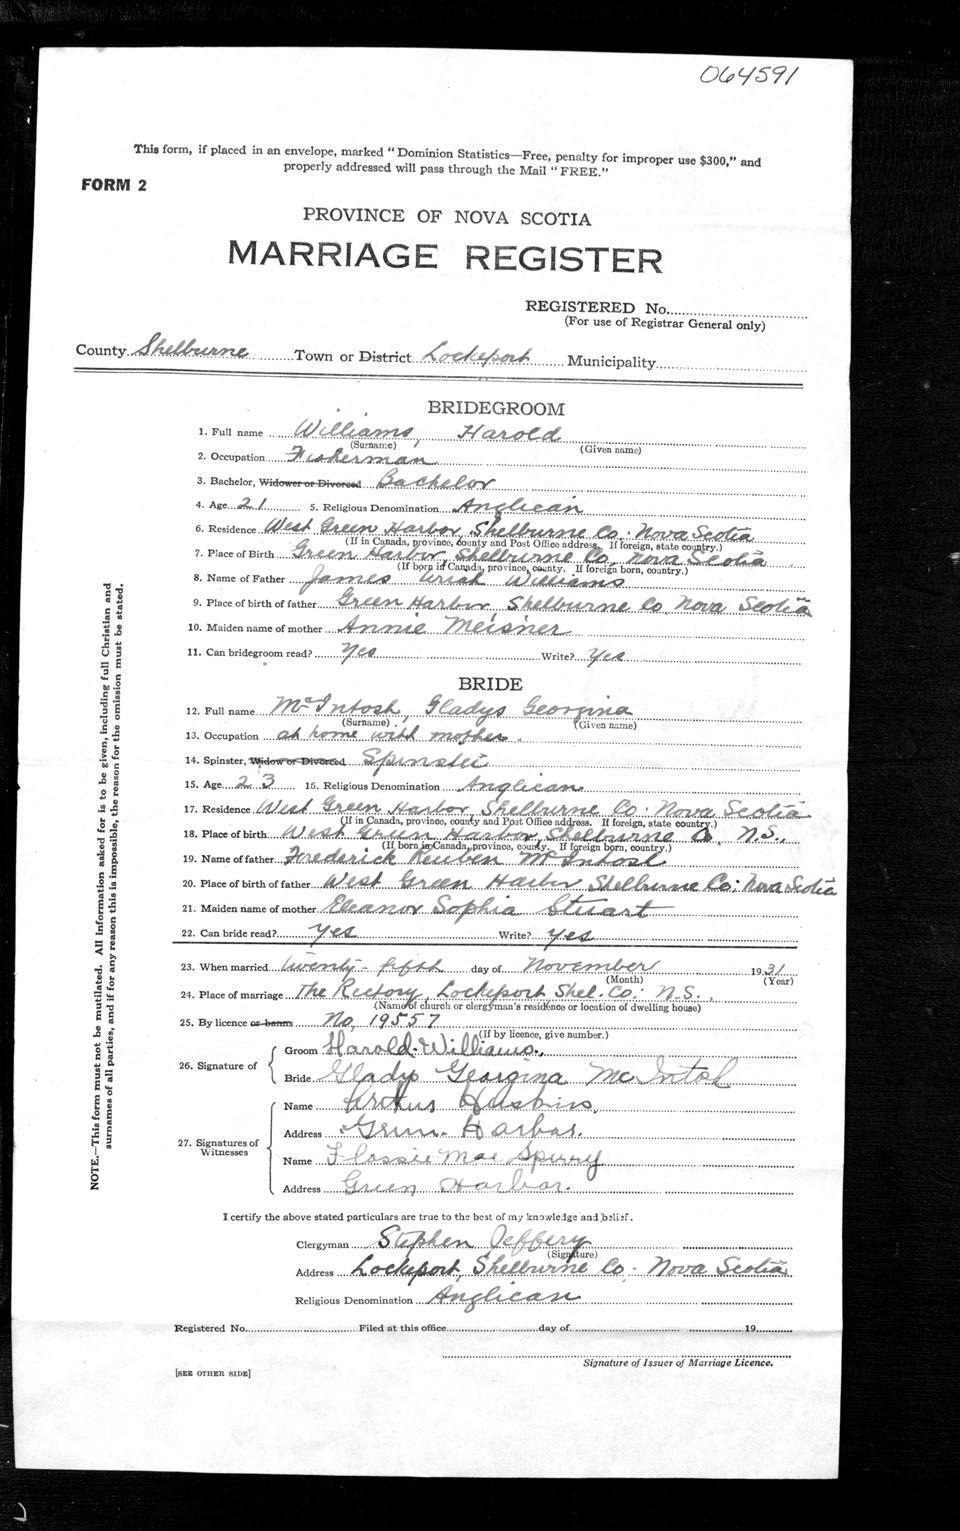 064591
This form, if placed in an envelope, marked "Dominion Statistics—Free, penalty for improper use $300," and
properly addressed will pass through the Mail "FREE."
FORM 2
PROVINCE OF NOVA SCOTIA
MARRIAGE REGISTER
REGISTERED No.
(For use of Registrar General only)
County Shelburne Town or District Lockeport Municipality
BRIDEGROOM
1. Full name Williams, Harold
(Surname) (Given name)
2. Occupation Fisherman
3. Bachelor, Widower or Divorced Bachelor
4. Age 21 5. Religious Denomination Anglican
6. Residence West Green Harbor, Shelburne Co. Nova Scotia
(If in Canada, province, county and Post Office address. If foreign, state country.)
7. Place of Birth Green Harbor, Shelburne Co, Nova Scotia
(If born in Canada, province, county. If foreign born, country.)
8. Name of Father James Uriah Williams
9. Place of birth of father Green Harbor, Shelburne Co, Nova Scotia
10. Maiden name of mother Annie Meisner
11. Can bridegroom read? Yes Write? Yes
BRIDE
12. Full name McIntosh, Gladys Georgina
(Surname) (Given name)
13. Occupation at home with mother.
14. Spinster, Widow or Divorced Spinster
15. Age 23 16. Religious Denomination Anglican
17. Residence West Green Harbor, Shelburne Co. Nova Scotia
(If in Canada, province, county and Post Office address. If foreign, state country.)
18. Place of birth West Green Harbor, Shelburne Co, N.S.,
(If born in Canada, province, county. If foreign born, country.)
19. Name of father Frederick Reuben McIntosh
20. Place of birth of father West Green Harbor, Shelburne Co; Nova Scotia
21. Maiden name of mother Eleanor Sophia Stuart
22. Can bride read? Yes Write? Yes
23. When married twenty fifth day of November 1931
(Month) (Year)
24. Place of marriage The Rectory, Lockeport Shel. Co. N.S.,
(Name of church or clergyman's residence or location of dwelling house)
25. By licence or banns No, 19557
(If by licence, give number.)
26. Signature of
Groom Harold Williams.
Bride Gladys Georgina McIntosh
27. Signatures of Witnesses
Name Huskins
Address Harbor.
Name Flossie Mae Sperry
Address Green Harbor.
I certify the above stated particulars are true to the best of my knowledge and belief.
Clergyman Stephen Jeffery
(Signature)
Address Lockeport, Shelburne Co. Nova Scotia
Religious Denomination Anglican
Registered No. Filed at this office day of 19
Signature of Issuer of Marriage Licence.
[SEE OTHER SIDE]
NOTE.—This form must not be mutilated. All information asked for is to be given, including full Christian and
surnames of all parties, and if for any reason this is impossible, the reason for the omission must be stated.